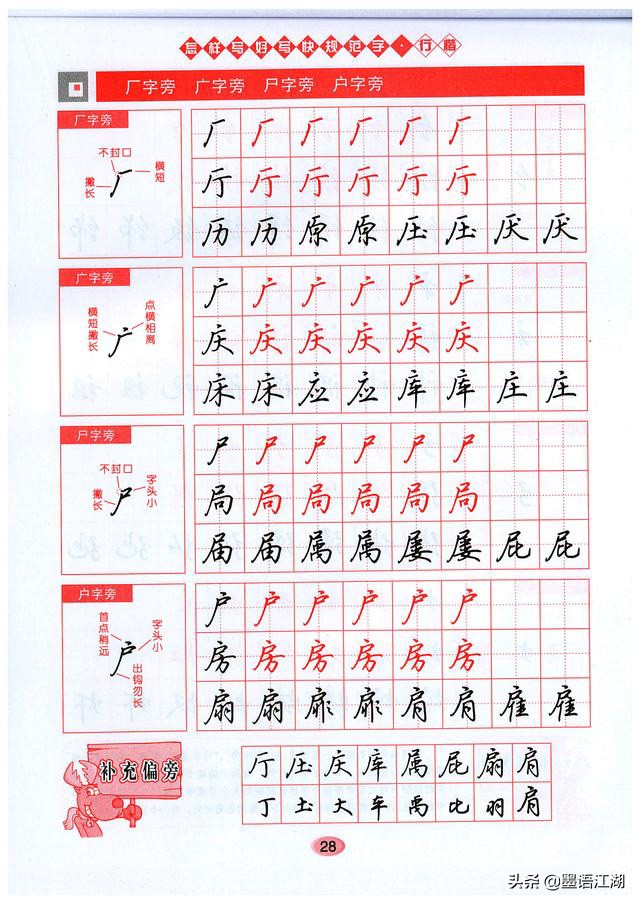 怎样写好写快规范字·行楷
厂字旁 广字旁 尸字旁 户字旁
厂字旁
不封口
横短
撇长
厂
厂 厂 厂 厂 厂 厂
厅 厅 厅 厅 厅 厅
历 历 原 原 压 压 厌 厌
广字旁
点横相离
横短撇长
广
广 广 广 广 广 广
庆 庆 庆 庆 庆 庆
床 床 应 应 库 库 庄 庄
尸字旁
不封口
字头小
撇长
尸
尸 尸 尸 尸 尸 尸
局 局 局 局 局 局
届 届 属 属 屡 屡 屁 屁
户字旁
首点稍远
字头小
出钩勿长
户
户 户 户 户 户 户
房 房 房 房 房 房
扇 扇 扉 扉 肩 肩 雇 雇
补充偏旁
厅 压 庆 库 属 屁 扇 肩
丁 圡 大 车 禹 比 羽 肩
28
头条 @墨语江湖